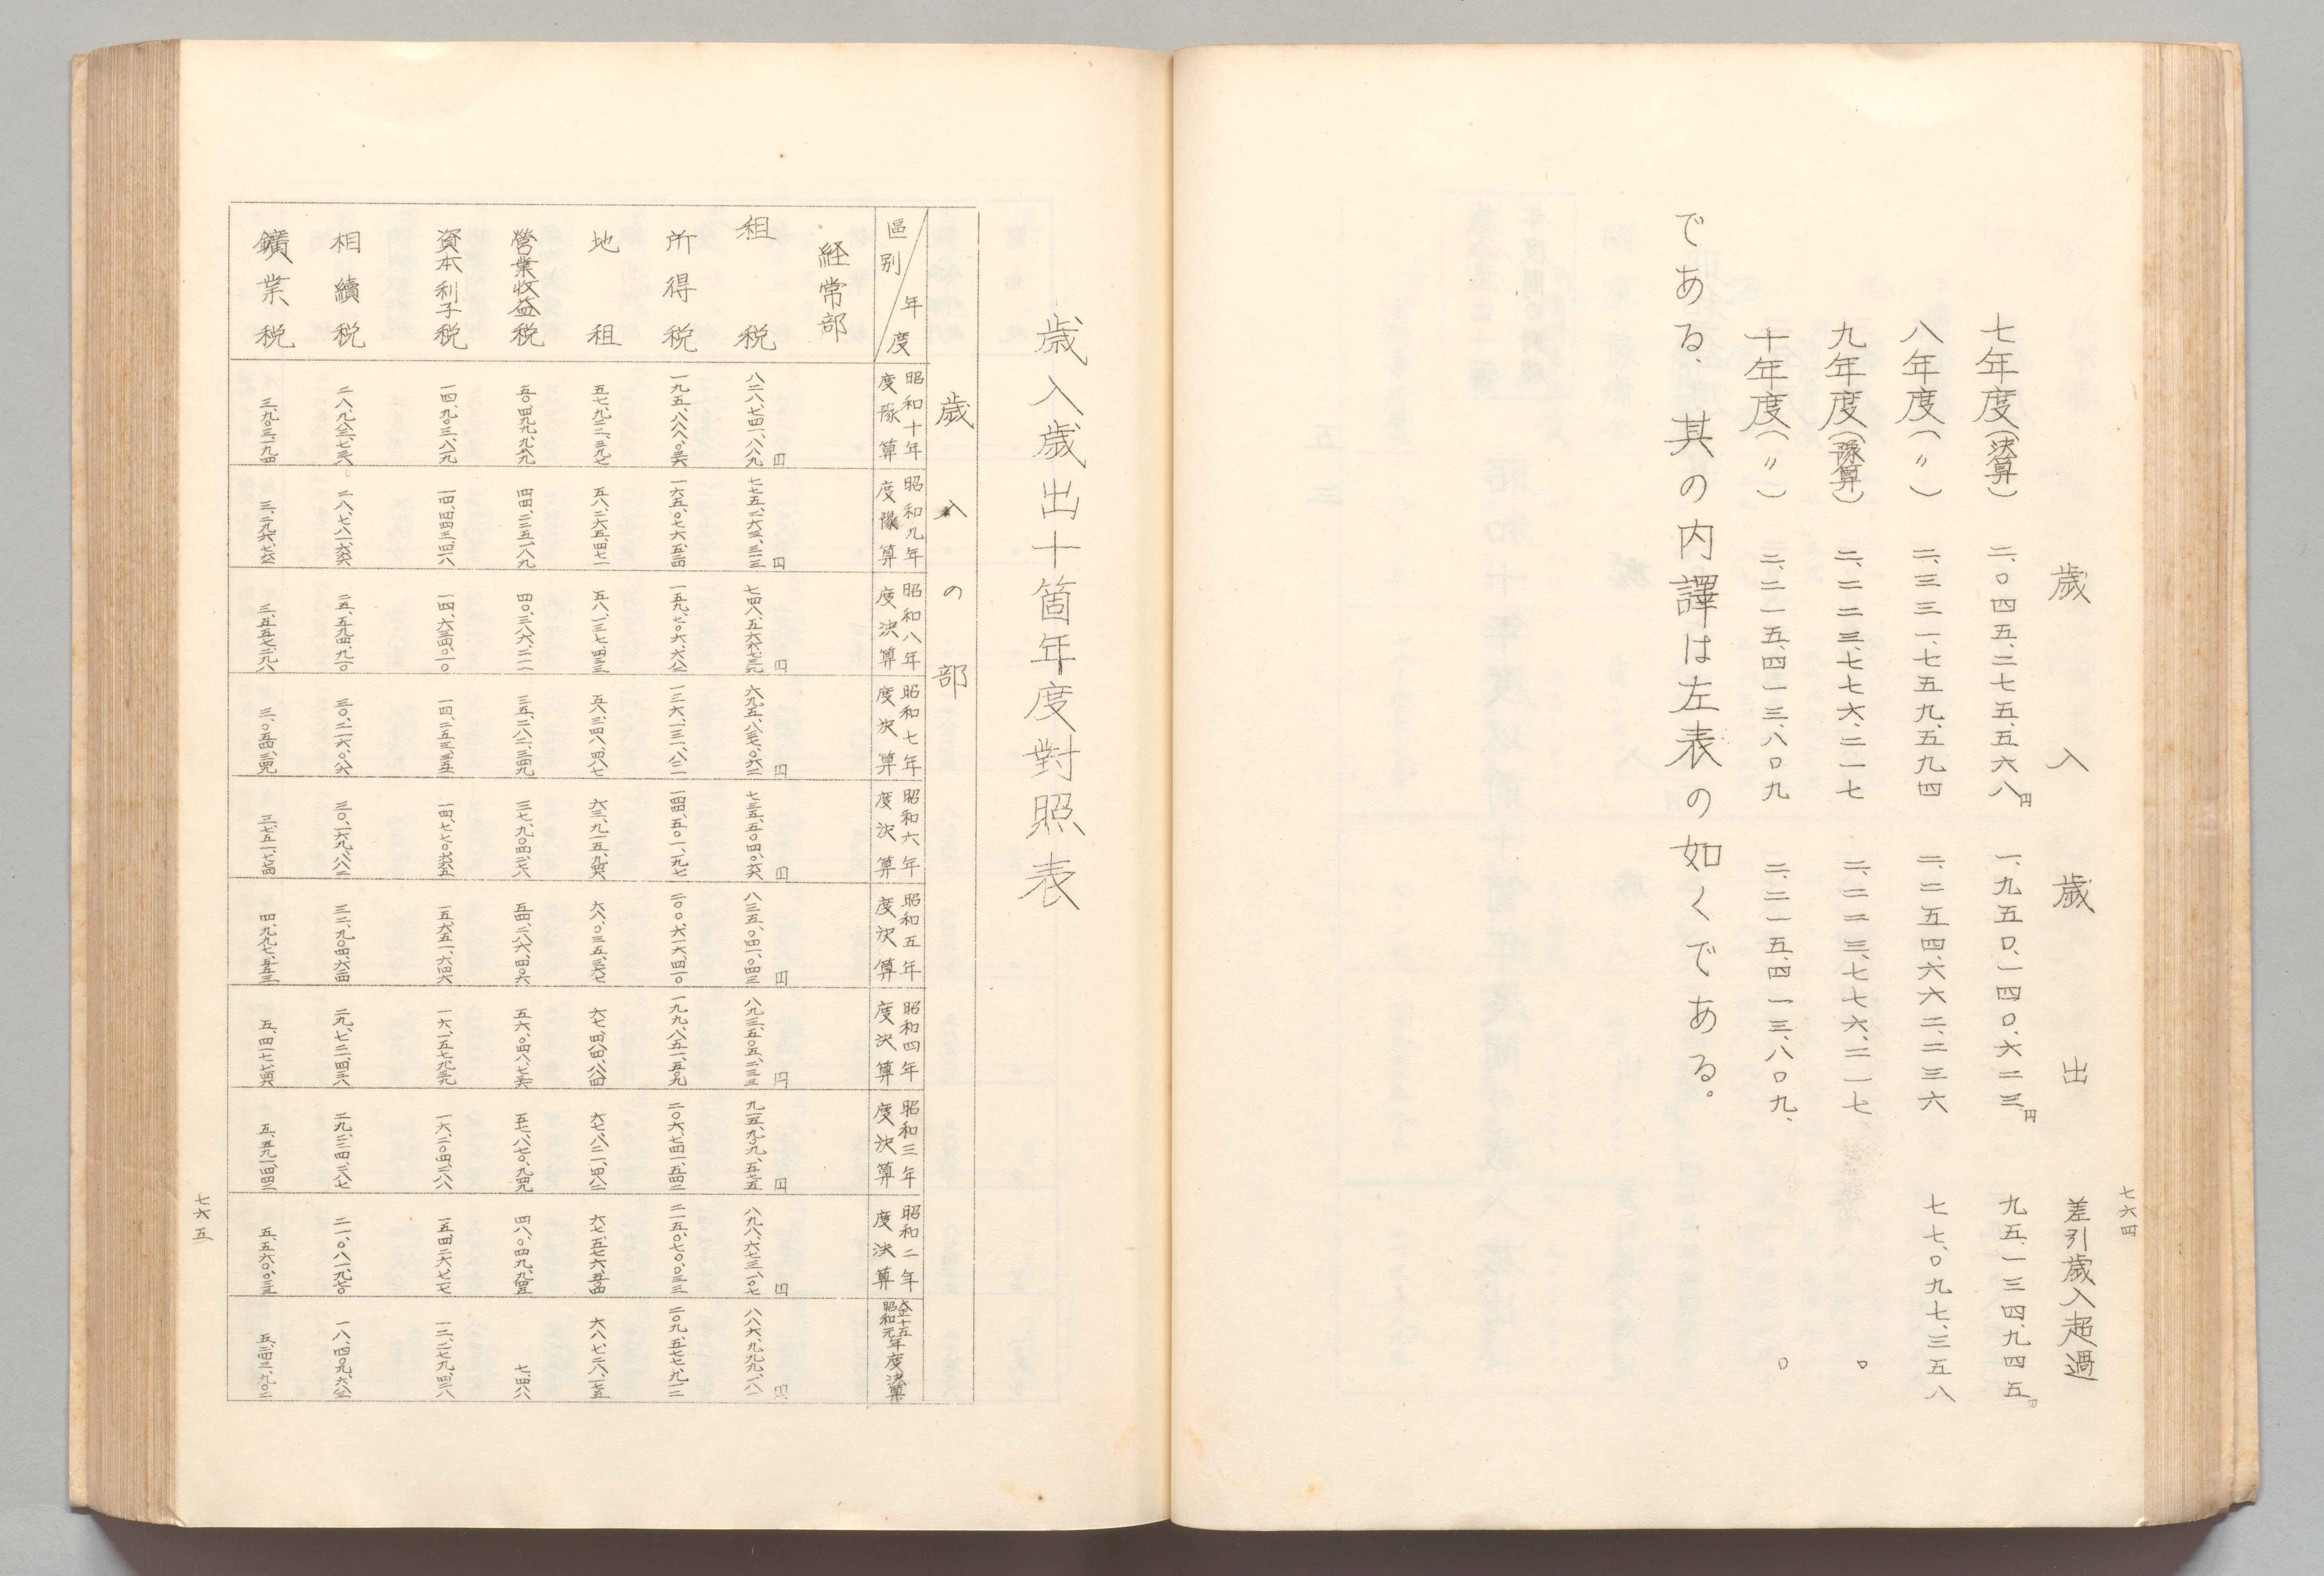 七六四
歳入 歳出 差引歳入超過
七年度(決算) 二、〇四五、二七五、五六八円 一、九五〇、一四〇、六二三円 九五、一三四、九四五円
八年度(〃) 二、三三一、七五九、五九四 二、二五四、六六二、二三六 七七、〇九七、三五八
九年度(豫算) 二、二二三、七七六、二一七 二、二二三、七七六、二一七 〇
十年度(〃) 二、二一五、四一三、八〇九 二、二一五、四一三、八〇九、 〇
である、其の内譯は左表の如くである。
歳入歳出十箇年度對照表
歳入の部
區別 年度 昭和十年度豫算 昭和九年度豫算 昭和八年度決算 昭和七年度決算 昭和六年度決算 昭和五年度決算 昭和四年度決算 昭和三年度決算 昭和二年度決算 大正十五昭和元年度決算
経常部
租税 八二八、七四一、八八九円 円 七四八、五六六、七三九円 六九五、八三七、〇六二円 七三五、五〇四、〇六六円 八三五、〇四一、〇四三円 八九三、五〇五、二三三円 九一五、九〇九、五七五円 八九八、六七三、一〇七円 八八六、九九九、一八一円
所得税 一九五、八八八、〇三六 一六五、〇七六、五二四 一五九、七〇六、六八二 一三六、一三一、八二一 一四四、五〇一、一九七 二〇〇、六一六、四一〇 一九九、八五一、五〇九 二〇六、七四一、五四二 二一五、〇七〇、〇三三 二〇九、五七七、九一二
地租 五七、九二二、三九七 五八、二六五、四七一 五八、一三七、四三三 五八、三四八、四八七 六三、九一五、九四六 六八、〇三五、三六七 六七、四八四、八八四 六七、八二一、四八二 六七、五七六、五五四 六八、七二八、一七五
營業收益税 五〇、四九九、九八九 四四、二三五、一八九 四〇、三八六、二一一 三五、二八二、三四九 三七、九〇四、二七八 五四、二八六、四〇六 五六、〇四八、七三六 五七、八七〇、九四九 四八、〇四九、九四五 七、四八八
資本利子税 一四、九〇三、八二九 一四、四四三、四二八 一四、六三四、〇一〇 一四、二五三、三三五 一四、七七〇、六六五 一五、六五一、六四六 一六、一五七、九三九 一六、二〇四、二八八 一五、四二六、七一七 一二、二七九、四二八
相續税 二八、九八三、七三六 二八、七八一、六六六 二五、五九四、九二〇 三〇、二一六、〇八六 三〇、一六九、八八二 三二、九〇四、六二四 二九、七二一、四三八 二九、三二四、二八七 二一、〇八一、九七〇 一八、四〇九、六八三
鑛業税 三、九〇三、一九四 三、二九六、七六三 三、五五七、二九八 三、〇五四、三四九 三、七五一、七七四 四、九九七、五五三 五、四一七、七四六 五、五九一、四四二 五、五六〇、〇三三 五、二四三、九〇二
七六五